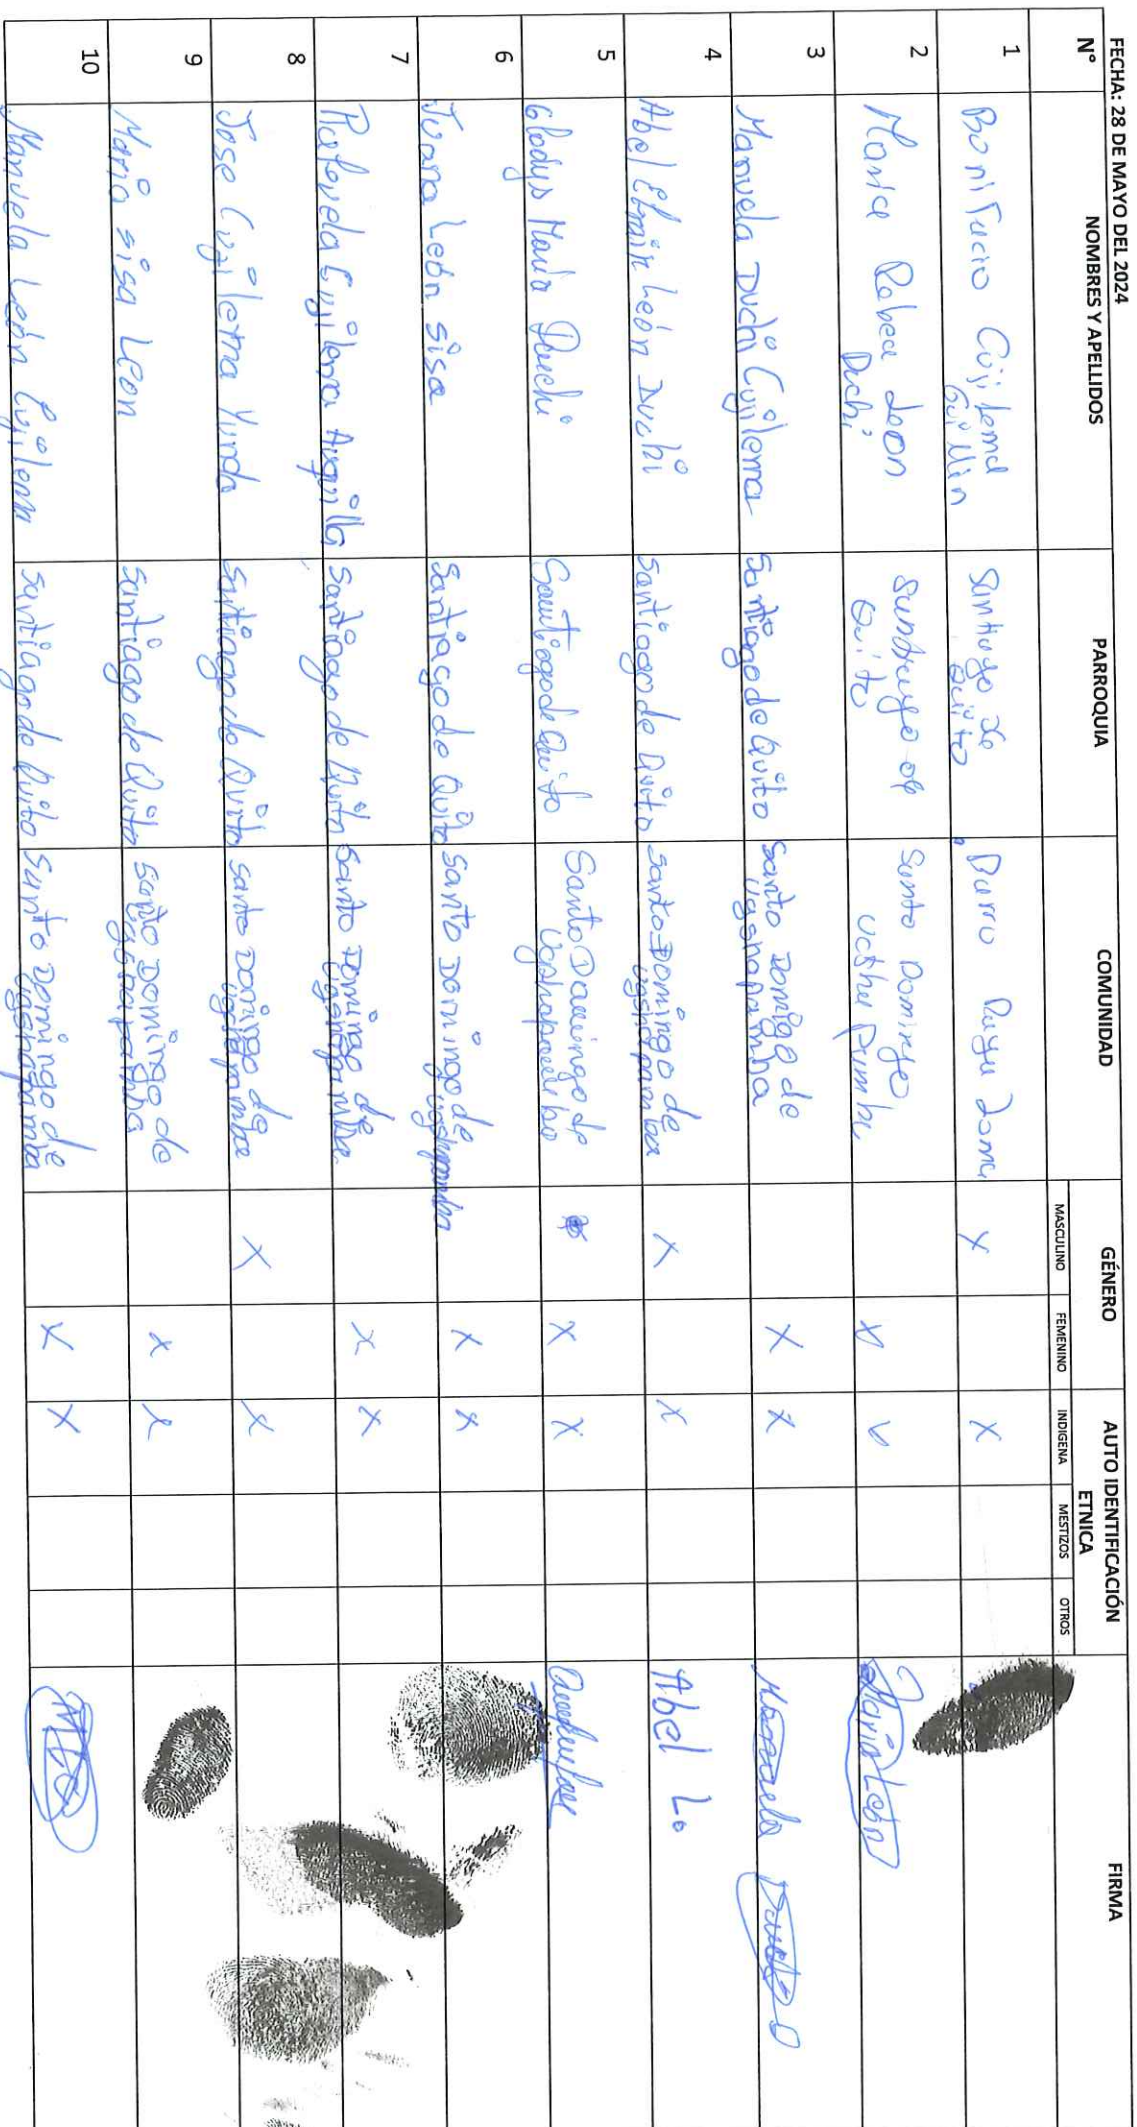 FECHA: 28 DE MAYO DEL 2024
N° NOMBRES Y APELLIDOS PARROQUIA COMUNIDAD GÉNERO AUTO IDENTIFICACIÓN ETNICA FIRMA
MASCULINO FEMENINO INDIGENA MESTIZOS OTROS
1 Bonifacio Cujilema Guillin Santiago de Quito Barro X X
2 Maria Rebeca Leon Duchi Santiago de Quito Santo Domingo X Maria León
3 Manuela Duchi Cujilema Santiago de Quito Santo Domigo de ugshapamba X X Manuela
4 Abel Efrain León Duchi Santiago de Quito Santo Domingo de ugshapamba X X Abel L.
5 Gladys María Duchi Santiago de Quito Santo Domingo de Ugshapamba X X
6 Juana León Sisa Santiago de Quito Santo Domingo de ugshpamba X X
7 Cujilema Santiago de Quito Santo Domingo de ugshapamba X X
8 Jose Cujilema Yunda Santiago de Quito Santo Domingo de ugshapamba X X
9 Maria sisa Leon Santiago de Quito Santo Domingo de ugshapamba X X
10 Manuela León Cujilema Santiago de Quito Santo Domingo de ugshapamba X X